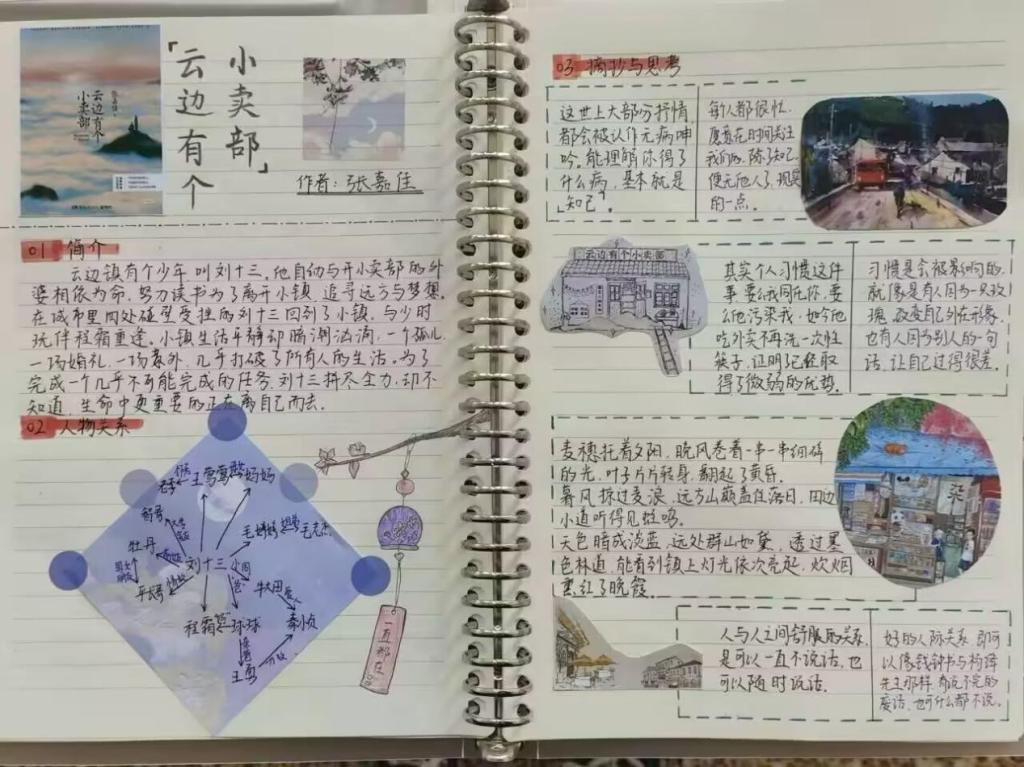 云边有个
小卖部
「云边有个
小卖部」
作者:张嘉佳
01 简介
云边镇有个少年叫刘十三,他自幼与开小卖部的外
婆相依为命,努力读书为了离开小镇,追寻远方与梦想。
在城市里四处碰壁受挫的刘十三回到了小镇,与少时
玩伴程霜重逢。小镇生活平静却暗潮汹涌,一个孤儿,
一场婚礼,一场意外,几乎打破了所有人的生活。为了
完成一个几乎不可能完成的任务,刘十三拼尽全力,却不
知道,生命中更重要的正在离自己而去。
02 人物关系
王莺莺
妈妈
毛婷婷
毛志杰
智哥
牡丹
刘十三
牛大田
秦小贞
程霜
球球
王勇
一直都在
03 摘抄与思考
这世上大部分抒情
都会被认作无病呻
吟。能理解你得了
什么病,基本就是
「知己」。
每人都很忙,
愿意花时间关注
我们的,除了知己,
便无他人了,现实
的一点。
云边有个小卖部
其实个人习惯这件
事,要么我同化你,要
么你污染我,如今他
吃外卖不再洗一次性
筷子,证明记经取
得了微弱的优势。
习惯是会被影响的,
就像是有人因为一只玫
瑰,改变自己外在形象,
也有人因为别人的一句
话,让自己过得很差。
麦穗托着夕阳,晚风卷着一串一串细碎
的光,叶子片片转身,翻起了黄昏。
暮风掠过麦浪,远方山巅盖住落日,田边
小道听得见蛙鸣。
天色暗成淡蓝,远处群山如黛,透过墨
色林道,能看到镇上灯光依次亮起,炊烟
熏红了晚霞。
人与人之间舒服的关系,
是可以一直不说话,也
可以随时说话。
好的人际关系,即可
以像钱钟书与杨绛
先生那样,有说不完的
废话,也可什么都不说。